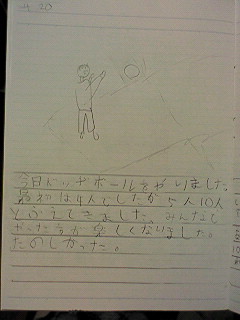 今日ドッチボールをやりました。
最初は4人でしたが5人10人
とふえてきました。みんなで
やった方が楽しくなりました。
たのしかった。